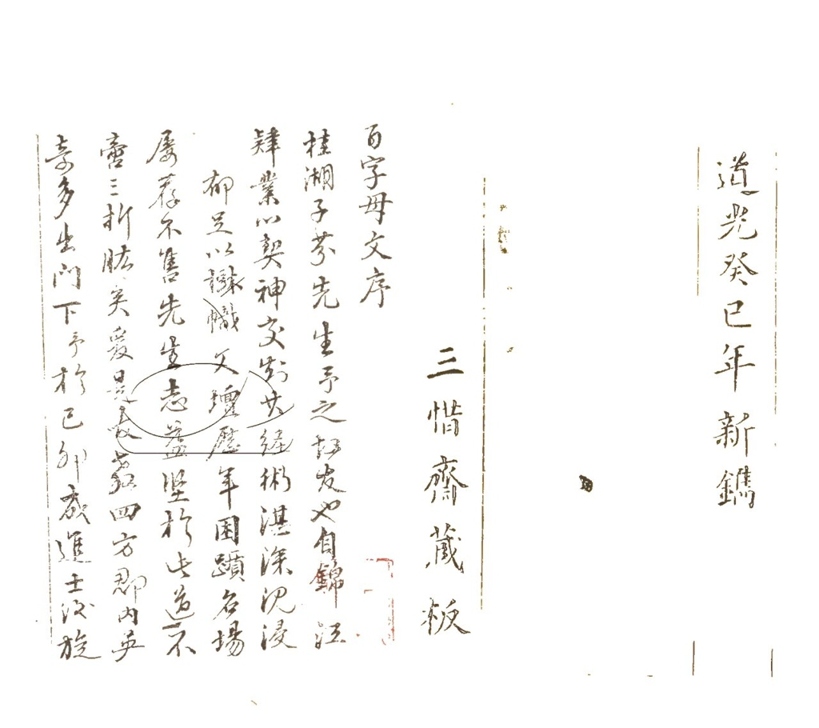 道光癸巳年新鐫
三惜齋藏板
百字母文序
桂湖子芬先生予之友也自錦江
肄業以契神交經術湛深沉浸
郁足以幟文壇歷年困躓名場
屢荐不售先生志益堅於此道不
啻三折肱矣爰是四方郡內英
奇多出門下予於己卯歲進士後旋